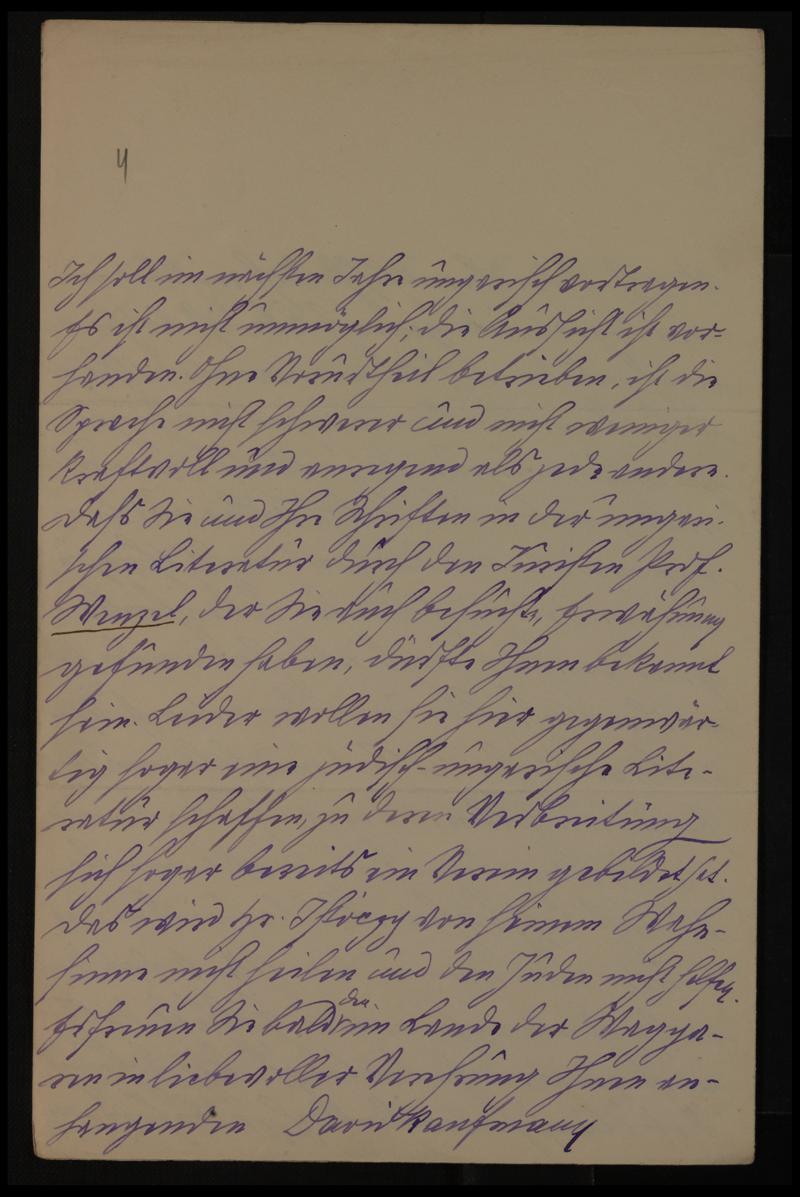 4
Ich soll im nächsten Jahre ungarisch vortragen.
Es ist nicht unmöglich; die Aussicht ist vor-
handen. Ohne Vorurtheil betrieben, ist die
Sprache nicht schwerer und nicht weniger
kraftvoll und anregend als jede andere.
Dass Sie und Ihre Schriften in der ungari-
schen Literatur durch den Juristen Prof.
Wenzel, der Sie auch besuchte, Erwähnung
gefunden haben, dürfte Ihnen bekannt
sein. Leider wollen sie hier gegenwär-
tig sogar eine jüdisch-ungarische Lite-
ratur schaffen, zu deren Verbreitung
sich sogar bereits ein Verein gebildet hat.
Das wird Hr. Istóczy von seinem Wahn-
sinne nicht heilen und den Juden nicht helfen.
Erfreuen Sie bald den im Lande der Magya-
ren in liebevoller Verehrung Ihnen an-
hangenden David Kaufmann